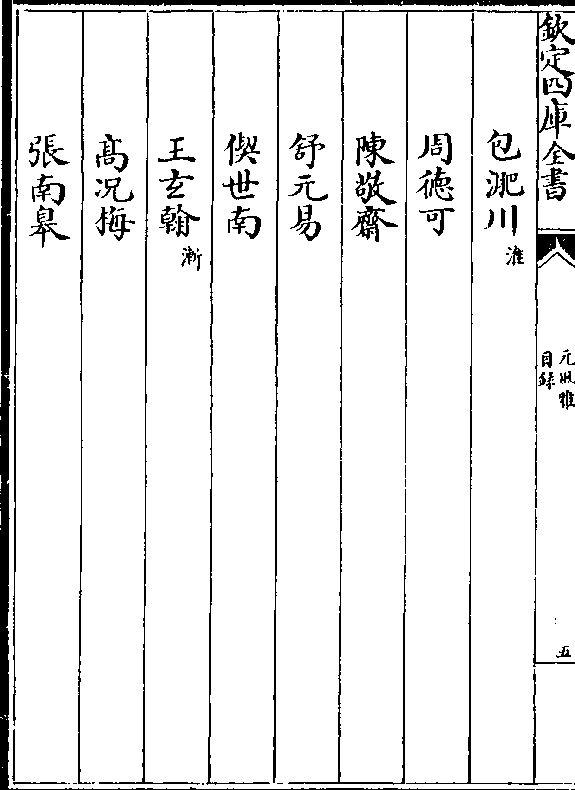 欽定四庫全書
元風雅
目錄
五
包淝川 淮
周德可
陳敬齋
舒元易
偰世南
王玄翰 漸
高况梅
張南皐